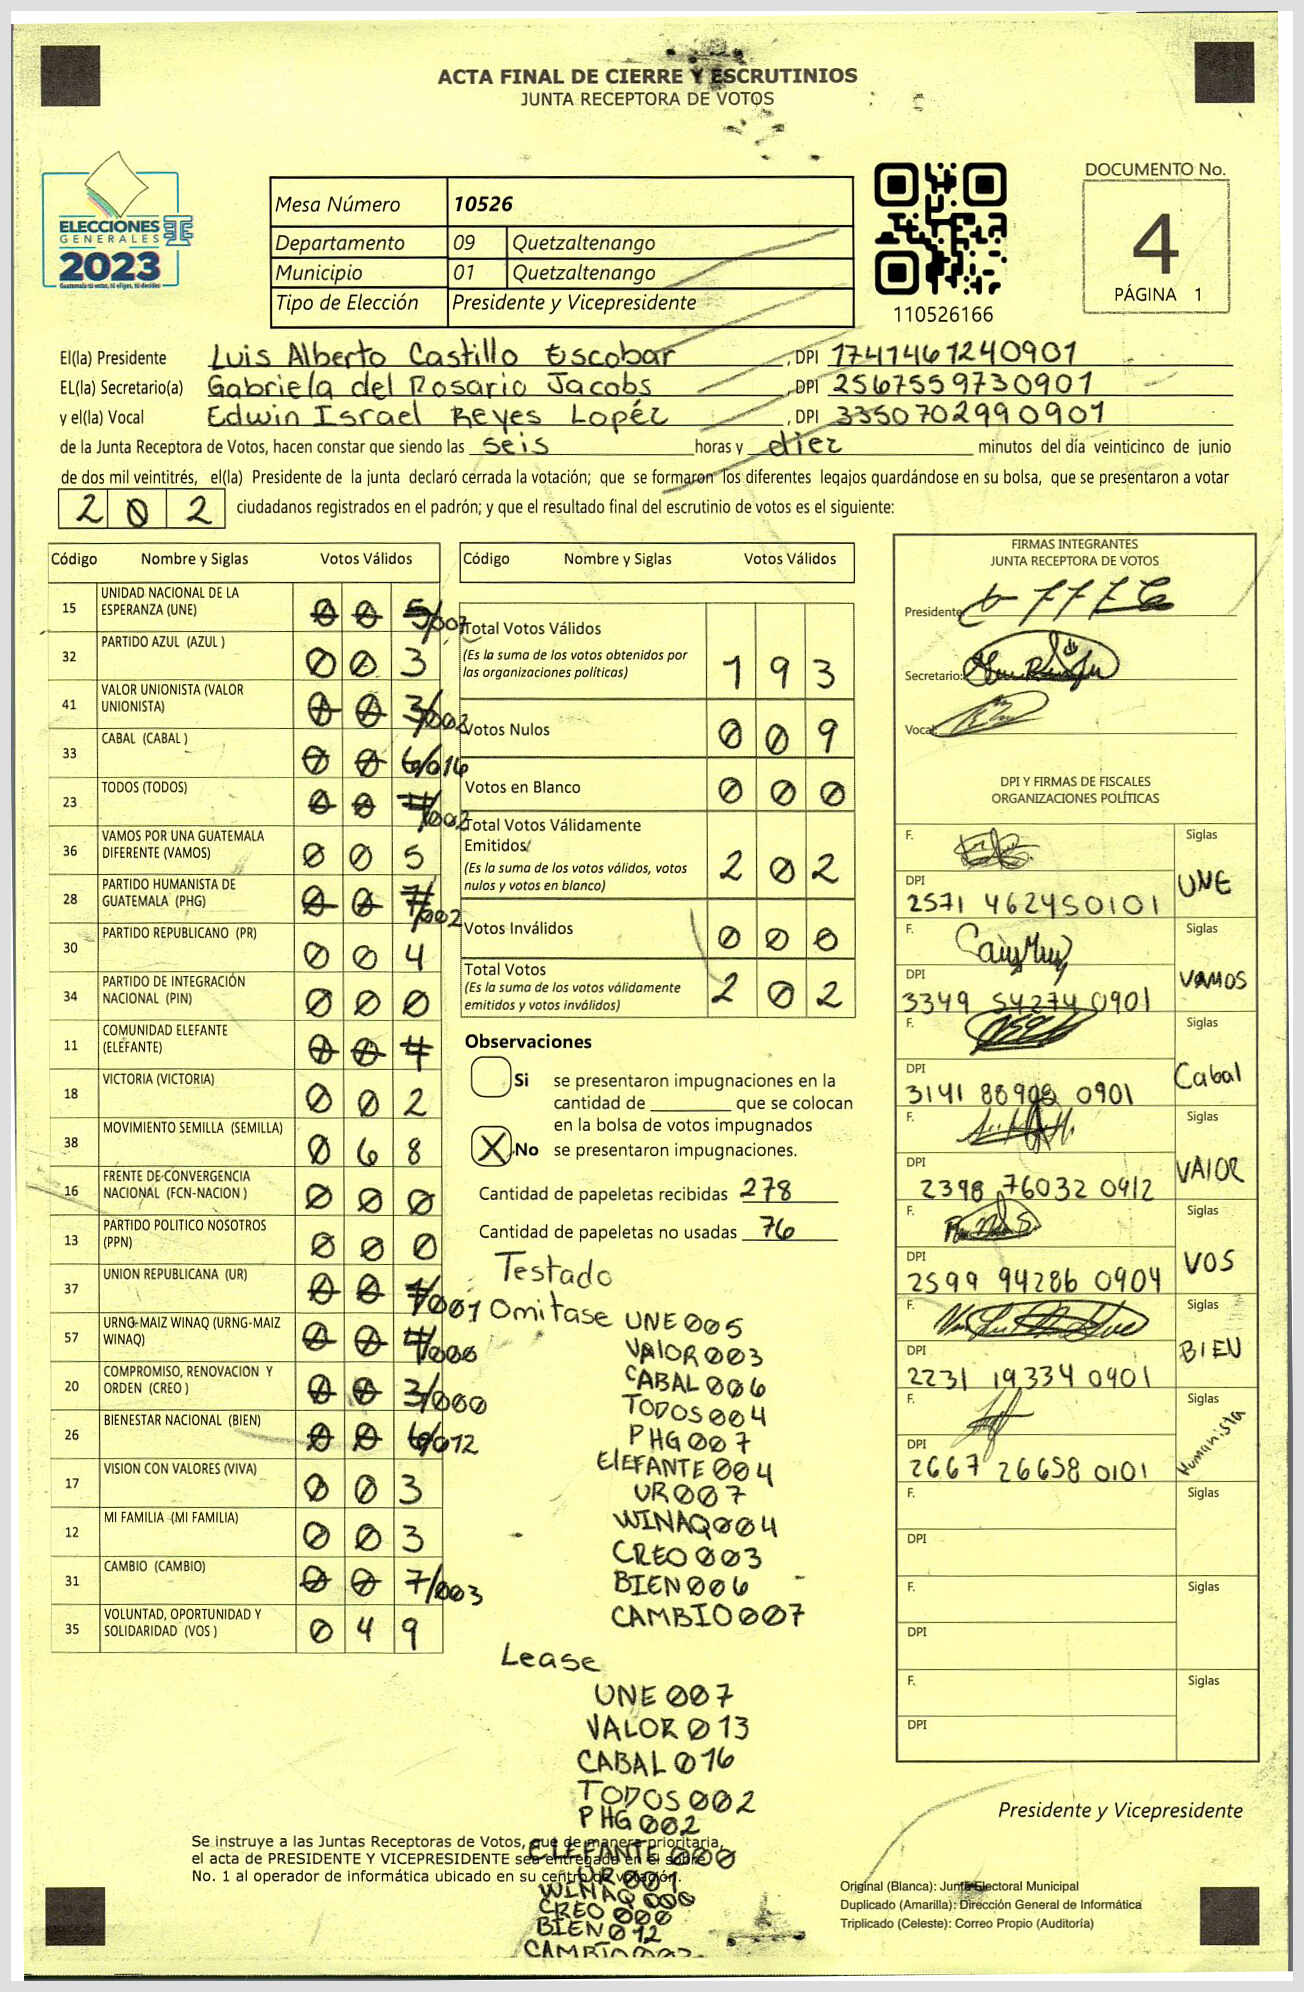 ACTA FINAL DE CIERRE Y ESCRUTINIOS
JUNTA RECEPTORA DE VOTOS
ELECCIONES
GENERALES
2023
Guatemala tú votas, tú eliges, tú decides
Mesa Número 10526
Departamento 09 Quetzaltenango
Municipio 01 Quetzaltenango
Tipo de Elección Presidente y Vicepresidente
110526166
DOCUMENTO No.
4
PÁGINA 1
El(la) Presidente Luis Alberto Castillo Escobar , DPI 1741461240901
EL(la) Secretario(a) Gabriela del Rosario Jacobs , DPI 2567559730901
y el(la) Vocal Edwin Israel Reyes Lopéz , DPI 3350702990901
de la Junta Receptora de Votos, hacen constar que siendo las seis horas y diez minutos del día veinticinco de junio
de dos mil veintitrés, el(la) Presidente de la junta declaró cerrada la votación; que se formaron los diferentes legajos guardándose en su bolsa, que se presentaron a votar
202 ciudadanos registrados en el padrón; y que el resultado final del escrutinio de votos es el siguiente:
Código Nombre y Siglas Votos Válidos
15 UNIDAD NACIONAL DE LA ESPERANZA (UNE) 005/007
32 PARTIDO AZUL (AZUL ) 003
41 VALOR UNIONISTA (VALOR UNIONISTA) 003/
33 CABAL (CABAL ) 006/016
23 TODOS (TODOS) 004/002
36 VAMOS POR UNA GUATEMALA DIFERENTE (VAMOS) 005
28 PARTIDO HUMANISTA DE GUATEMALA (PHG) 007/002
30 PARTIDO REPUBLICANO (PR) 004
34 PARTIDO DE INTEGRACIÓN NACIONAL (PIN) 000
11 COMUNIDAD ELEFANTE (ELEFANTE) 004
18 VICTORIA (VICTORIA) 002
38 MOVIMIENTO SEMILLA (SEMILLA) 068
16 FRENTE DE CONVERGENCIA NACIONAL (FCN-NACION ) 000
13 PARTIDO POLITICO NOSOTROS (PPN) 000
37 UNION REPUBLICANA (UR) 007/001
57 URNG-MAIZ WINAQ (URNG-MAIZ WINAQ) 004/000
20 COMPROMISO, RENOVACION Y ORDEN (CREO ) 003/000
26 BIENESTAR NACIONAL (BIEN) 006/012
17 VISION CON VALORES (VIVA) 003
12 MI FAMILIA (MI FAMILIA) 003
31 CAMBIO (CAMBIO) 007/003
35 VOLUNTAD, OPORTUNIDAD Y SOLIDARIDAD (VOS ) 049
Código Nombre y Siglas Votos Válidos
Total Votos Válidos
(Es la suma de los votos obtenidos por las organizaciones políticas) 193
Votos Nulos 009
Votos en Blanco 000
Total Votos Válidamente Emitidos
(Es la suma de los votos válidos, votos nulos y votos en blanco) 202
Votos Inválidos 000
Total Votos
(Es la suma de los votos válidamente emitidos y votos inválidos) 202
Observaciones
Si se presentaron impugnaciones en la
cantidad de ________ que se colocan
en la bolsa de votos impugnados
X No se presentaron impugnaciones.
Cantidad de papeletas recibidas 278
Cantidad de papeletas no usadas 76
Testado
Omitase UNE 005
VALOR 003
CABAL 006
TODOS 004
PHG 007
ElEFANTE 004
UR 007
WINAQ 004
CREO 003
BIEN 006
CAMBIO 007
Lease
UNE 007
VALOR 013
CABAL 016
TODOS 002
PHG 002
ELEFANTE 000
UR 001
WINAQ 000
CREO 000
BIEN 012
CAMBIO 003
FIRMAS INTEGRANTES
JUNTA RECEPTORA DE VOTOS
Presidente:
Secretario:
Vocal:
DPI Y FIRMAS DE FISCALES
ORGANIZACIONES POLÍTICAS
F. Siglas
DPI 2571 46245 0101 UNE
F. Siglas
DPI 3349 54274 0901 VAMOS
F. Siglas
DPI 3141 88908 0901 Cabal
F. Siglas
DPI 2398 76032 0912 VAlOR
F. Siglas
DPI 2599 94286 0904 VOS
F. Siglas
DPI 2231 19334 0901 BIEN
F. Siglas
DPI 2667 26658 0101 Humanista
F. Siglas
DPI
F. Siglas
DPI
F. Siglas
DPI
Presidente y Vicepresidente
Se instruye a las Juntas Receptoras de Votos, que de manera prioritaria,
el acta de PRESIDENTE Y VICEPRESIDENTE sea entregada en el sobre
No. 1 al operador de informática ubicado en su centro de votación.
Original (Blanca): Junta Electoral Municipal
Duplicado (Amarilla): Dirección General de Informática
Triplicado (Celeste): Correo Propio (Auditoría)